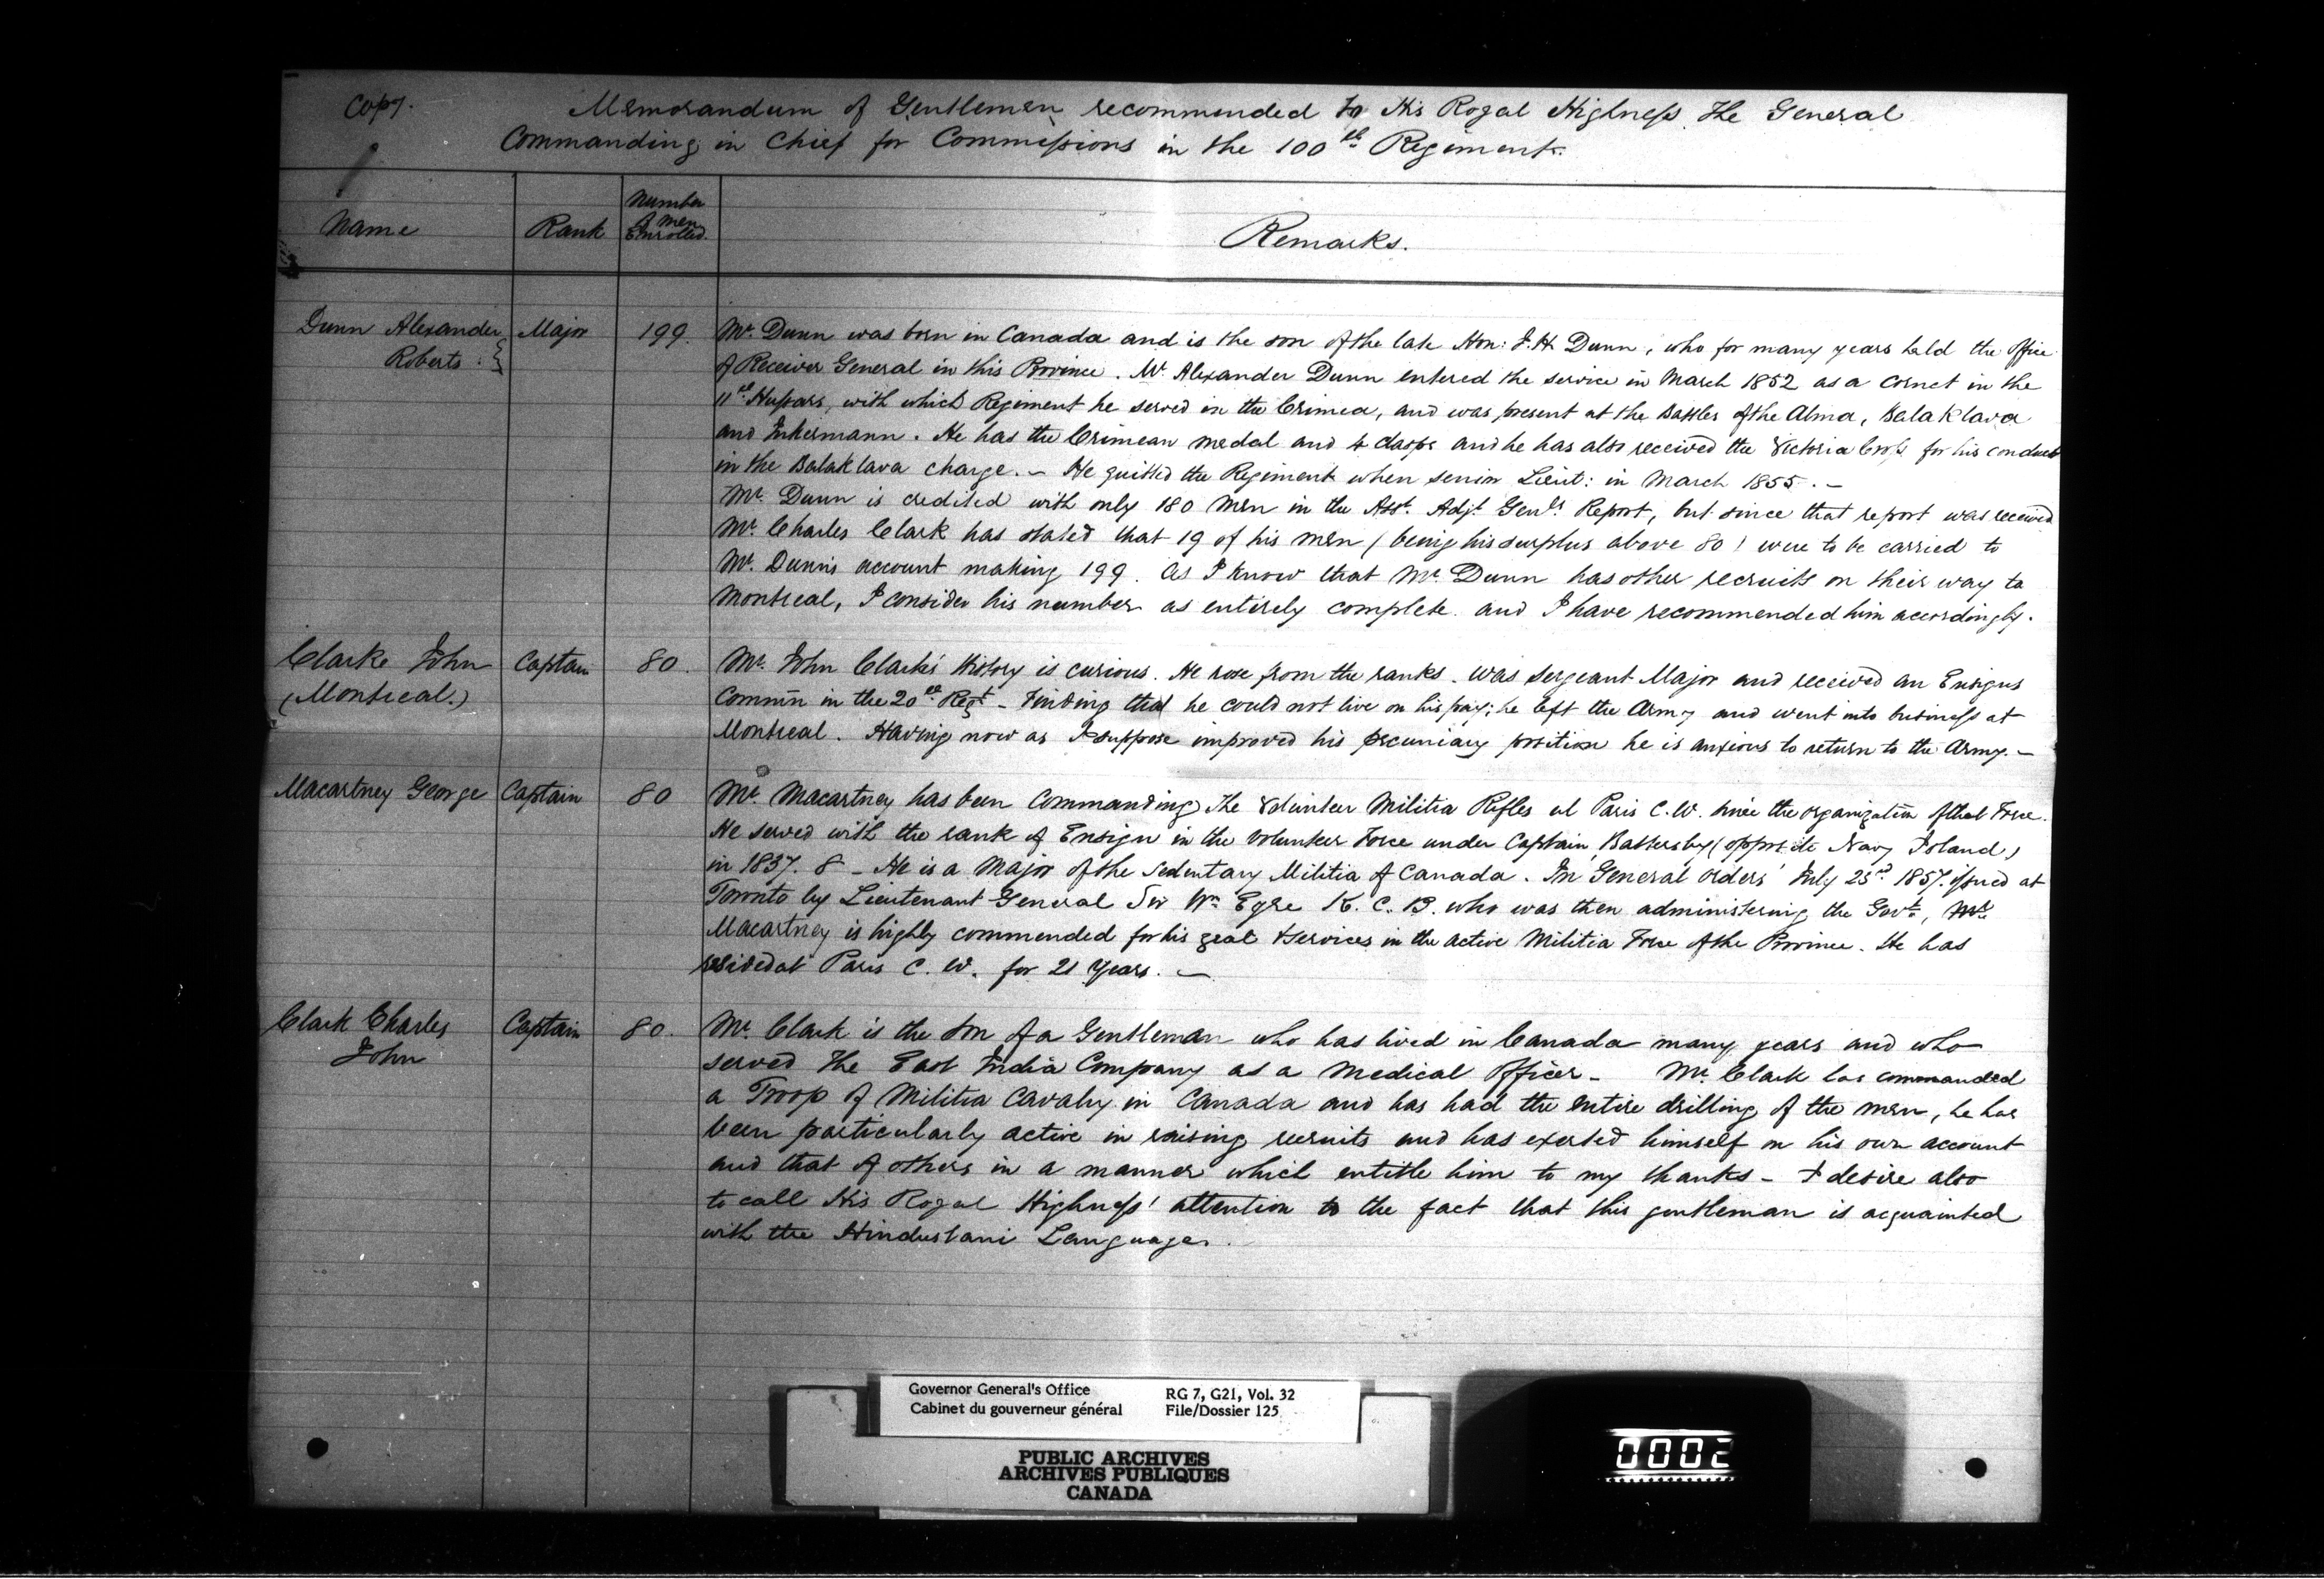 Copy.
Memorandum of Gentlemen recommended to His Royal Highness the General
Commanding in Chief for Commissions in the 100th Regiment.
Name
Rank
Number
of men
Enrolled.
Remarks.
Dunn Alexander
Roberts.
Major
199.
Mr. Dunn was born in Canada and is the son of the late Hon: J. H. Dunn, who for many years held the office
of Receiver General in this Province. Mr. Alexander Dunn entered the service in March 1852 as a cornet in the
11th Hussars, with which Regiment he served in the Crimea, and was present at the Battles of the Alma, Balaklava
and Inkermann. He has the Crimean medal and 4 clasps and he has also received the Victoria Cross for his conduct
in the Balaklava charge. – He quitted the Regiment when senior Lieut: in March 1855. –
Mr. Dunn is credited with only 180 men in the Asst. Adjt. Genls. Report, but since that report was received
Mr. Charles Clark has stated that 19 of his men (being his surplus above 80) were to be carried to
Mr. Dunn's account making 199. As I know that Mr. Dunn has other recruits on their way to
Montreal, I consider his number as entirely complete and I have recommended him accordingly.
Clarke John
(Montreal.)
Captain
80.
Mr. John Clarke's History is curious. He rose from the ranks. Was Sergeant Major and received an Ensigns
Commn in the 20th Regt – Finding that he could not live on his pay; he left the Army and went into business at
Montreal. Having now as I suppose improved his pecuniary position he is anxious to return to the Army. –
Macartney George
Captain
80
Mr. Macartney has been Commanding the Volunteer Militia Rifles at Paris C.W. since the organization of that Force.
He served with the rank of Ensign in the Volunteer Force under Captain Battersby (opposite Navy Island)
in 1837. 8 – He is a Major of the Sedentary Militia of Canada. In General Orders July 23rd 1857. issued at
Toronto by Lieutenant General Sir Wm Eyre K. C. B. who was then administering the Govt, Mr.
Macartney is highly commended for his zeal & services in the active Militia Force of the Province. He has
resided at Paris C. W. for 21 Years. –
Clark Charles
John
Captain
80.
Mr. Clark is the son of a Gentleman who has lived in Canada many years and who
served the East India Company as a Medical Officer – Mr. Clark has commanded
a Troop of Militia Cavalry in Canada and has had the entire drilling of the men, he has
been particularly active in raising recruits and has exerted himself on his own account
and that of others in a manner which entitle him to my thanks – I desire also
to call His Royal Highness' attention to the fact that this gentleman is acquainted
with the Hindustani Languages.
Governor General's Office
Cabinet du gouverneur général
RG 7, G21, Vol. 32
File/Dossier 125
PUBLIC ARCHIVES
ARCHIVES PUBLIQUES
CANADA
0002